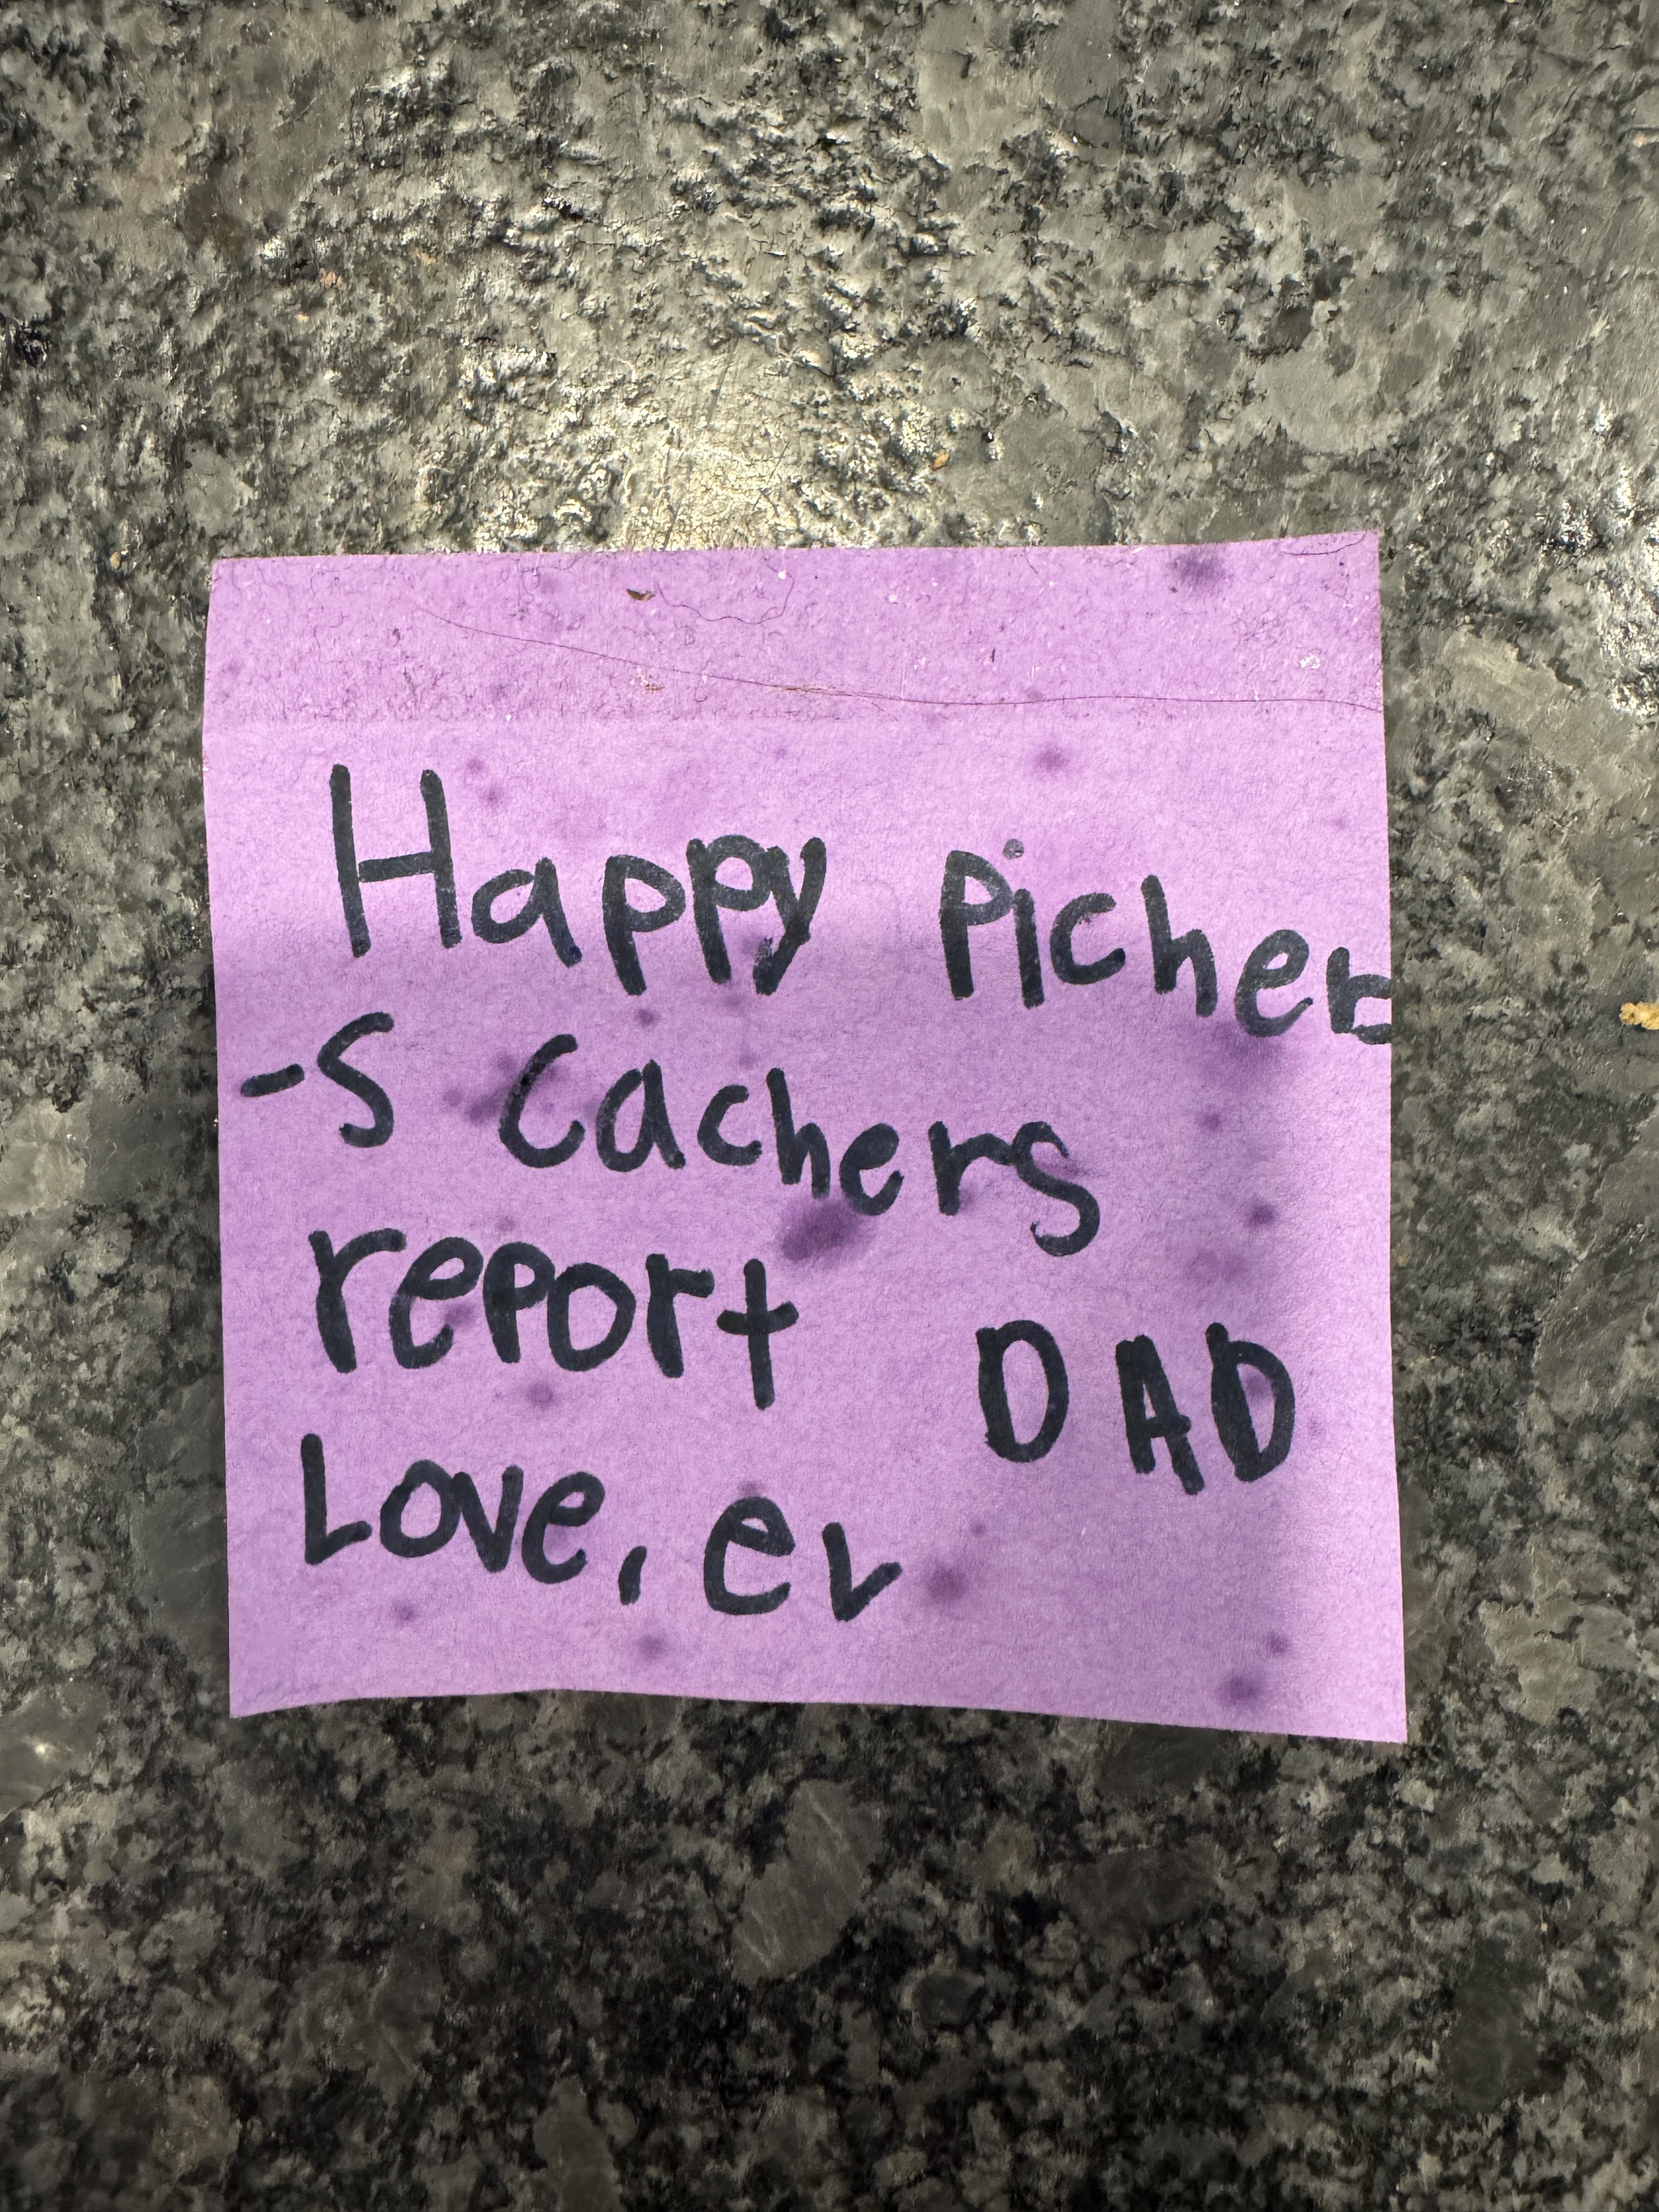 Happy Picher
-s Cachers
report DAD
Love, ev